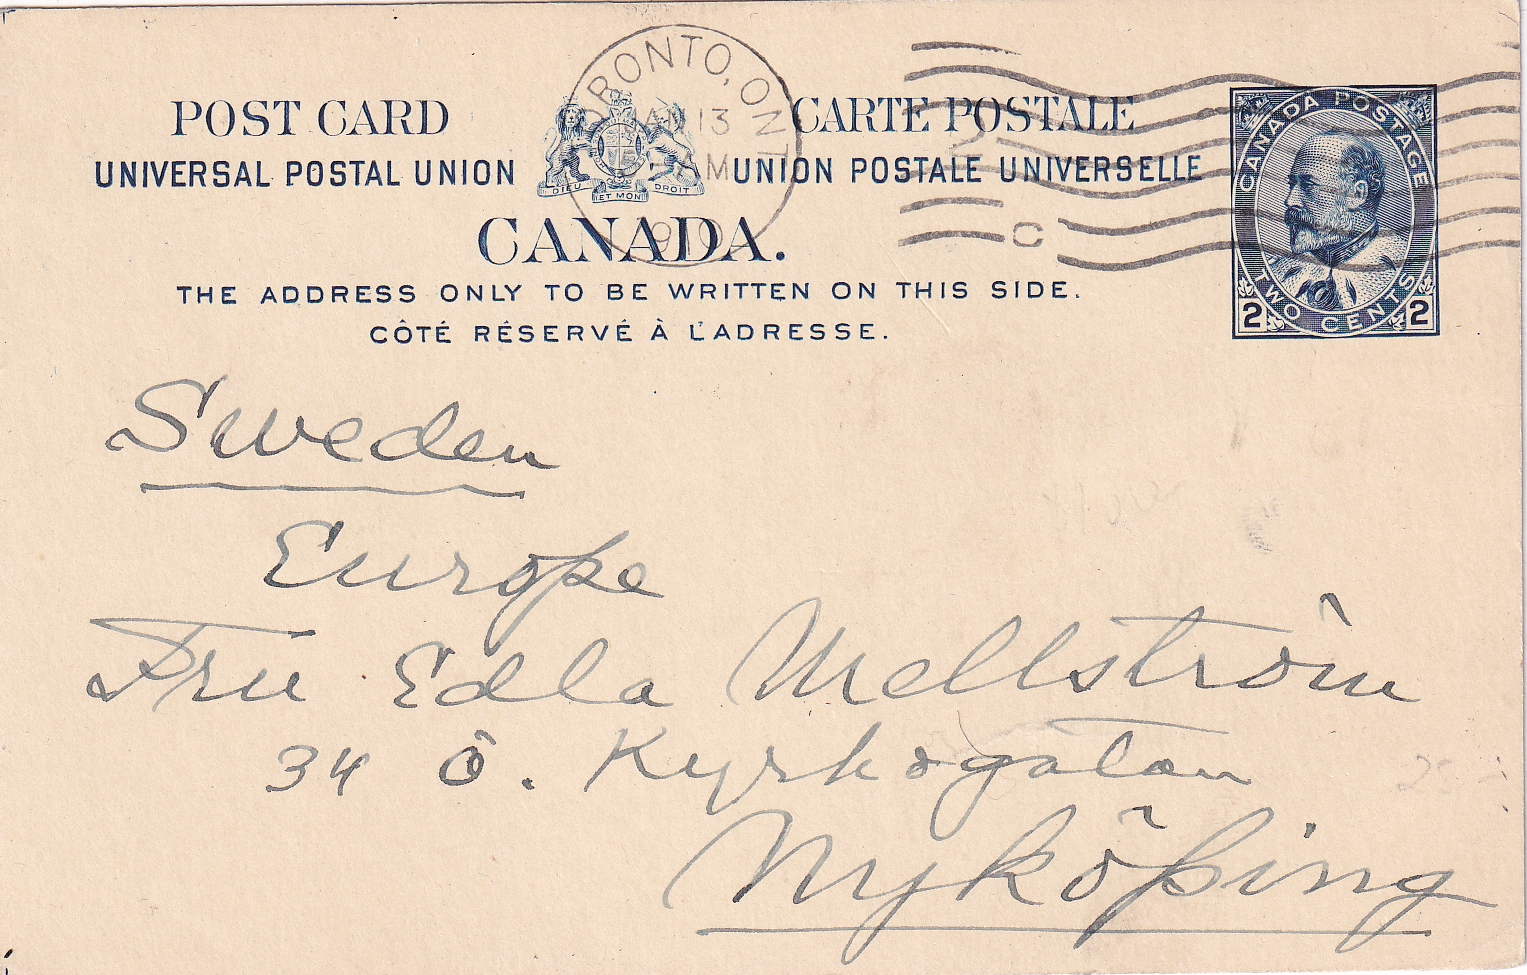 TORONTO, ONT
13
M
POST CARD
CARTE POSTALE
UNIVERSAL POSTAL UNION
UNION POSTALE UNIVERSELLE
DIEU ET MON DROIT
CANADA.
THE ADDRESS ONLY TO BE WRITTEN ON THIS SIDE.
CÔTÉ RÉSERVÉ À L'ADRESSE.
CANADA POSTAGE
TWO CENTS
2 2
C
Sweden
Europe
Fru Edla Mellström
34 Ö. Kyrkogatan
Nyköping